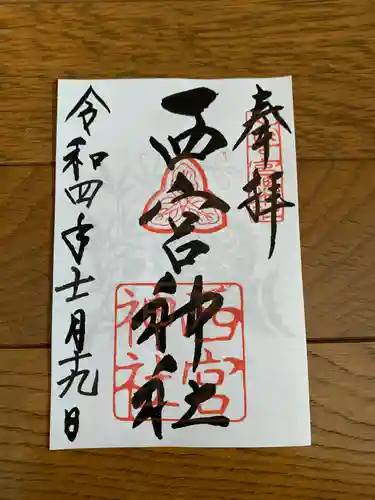 奉拝
西宮神社
西宮
神社
令和四年十一月十九日